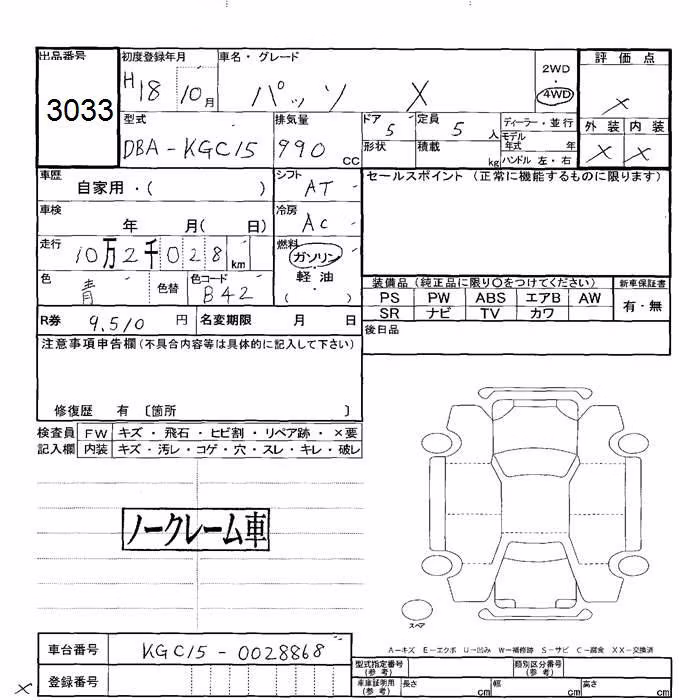 出品番号 初度登録年月 車名・グレード 2WD ・ 4WD 評価点
3033 H18 10月 パッソ X X
型式 排気量 ドア 定員 ディーラー・並行 外装 内装
DBA-KGC15 990 CC 5 5 人 モデル年式 年 X X
形状 積載 kg ハンドル 左・右
車歴 自家用・( ) シフト AT セールスポイント (正常に機能するものに限ります)
車検 年 月( 日) 冷房 AC
走行 10万2千028 km 燃料 ガソリン ・ 軽油 ( )
色 青 色替 色コード B42
装備品 (純正品に限り〇をつけてください) 新車保証書
PS PW ABS エアB AW 有・無
SR ナビ TV カワ
R券 9,510 円 名変期限 月 日 後日品
注意事項申告欄(不具合内容等は具体的に記入して下さい)
修復歴 有 〔箇所 〕
検査員 FW キズ・飛石・ヒビ割・リペア跡・×要
記入欄 内装 キズ・汚レ・コゲ・穴・スレ・キレ・破レ
ノークレーム車
スペア
A-キズ E-エクボ U-凹み W-補修跡 S-サビ C-腐食 XX-交換済
車台番号 KGC15-0028868
型式指定番号(参考) 類別区分番号(参考)
X 登録番号 車庫証明用(参考) 長さ cm 幅 cm 高さ cm